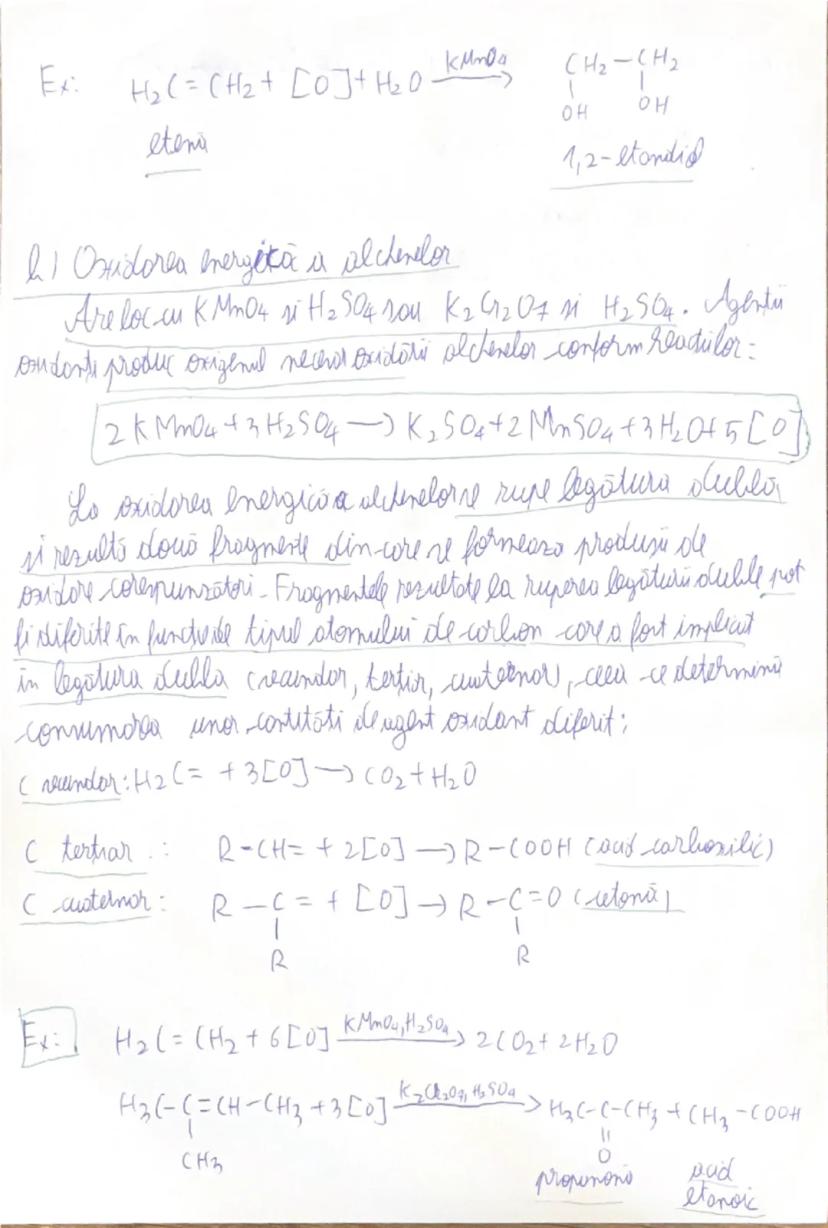 Ex: H2C=CH2 + [O] + H2O —KMnO4→ CH2-CH2
OH OH
etenă 1,2-etandiol
b) Oxidarea energică a alchenelor
Are loc cu KMnO4 si H2SO4 sau K2Cr2O7 si H2SO4. Agentii
oxidanti produc oxigenul necesar oxidării alchenelor conform reactiilor:
2 KMnO4 + 3 H2SO4 → K2SO4 + 2 MnSO4 + 3 H2O + 5 [O]
La oxidarea energică a alchenelor se rupe legătura dublă
si rezultă două fragmente din care se formeaza produsii de
oxidare corespunzători. Fragmentele rezultate la ruperea legăturii duble pot
fi diferite în functie de tipul atomului de carbon care a fost implicat
în legătura dublă (secundar, tertiar, cuaternar), ceea ce determină
consumarea unor cantităti de agent oxidant diferit:
C secundar: H2C= + 3[O] → CO2 + H2O
C tertiar : R-CH= + 2[O] → R-COOH (acid carboxilic)
C cuaternar: R-C= + [O] → R-C=O (cetonă)
R R
Ex: H2C=CH2 + 6[O] —KMnO4, H2SO4→ 2CO2 + 2H2O
H3C-C=CH-CH3 + 3[O] —K2Cr2O7, H2SO4→ H3C-C-CH3 + CH3-COOH
CH3 O
propanonă acid
etanoic